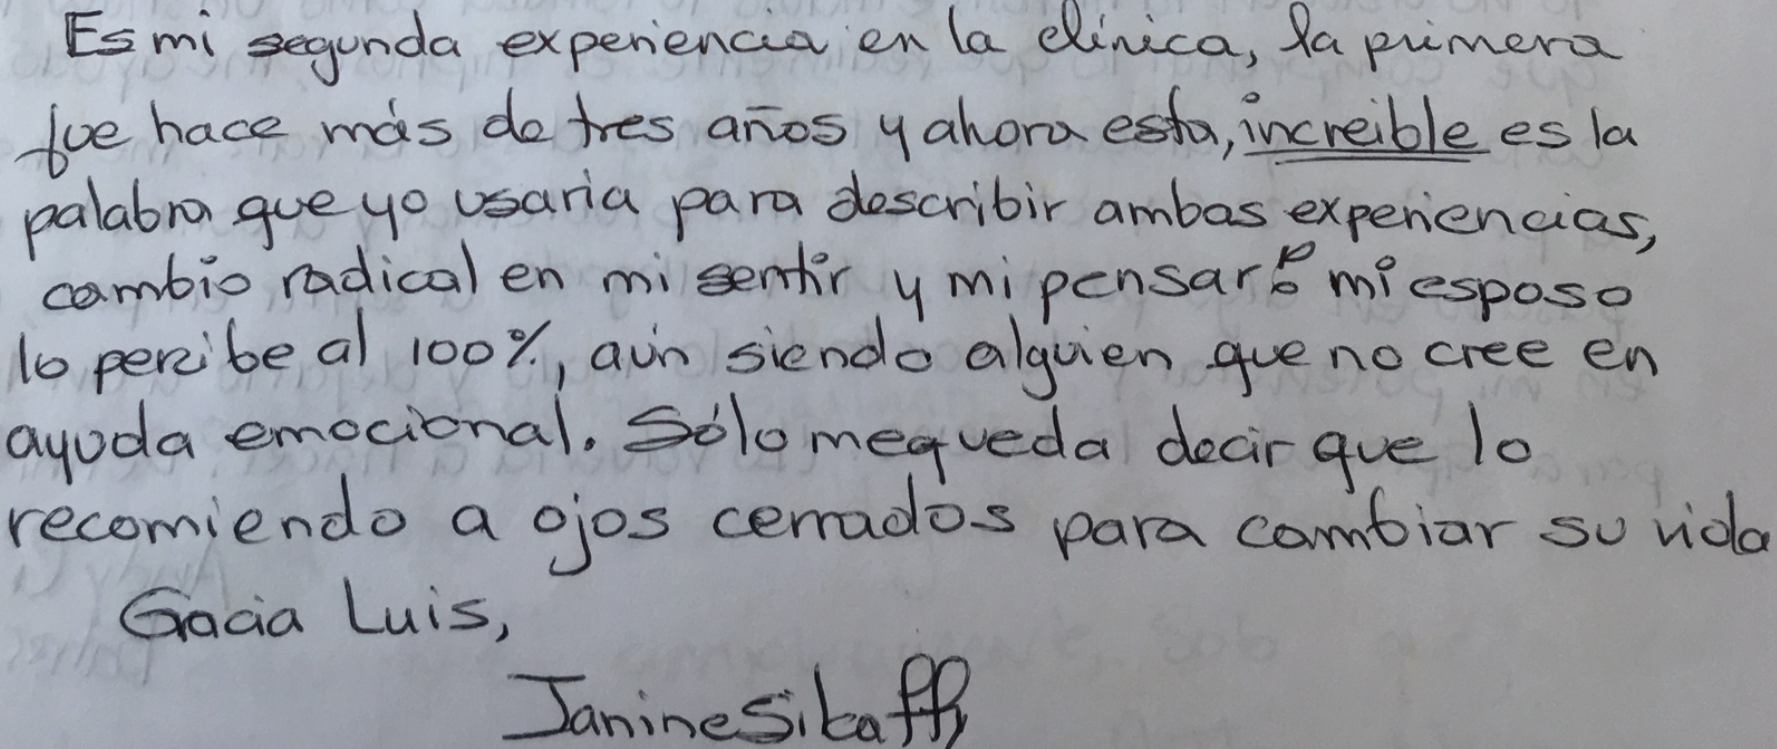 Es mi segunda experiencia en la clínica, la primera
fue hace más de tres años y ahora esta, increible es la
palabra que yo usaria para describir ambas experiencias,
cambio radical en mi sentir y mi pensar mi esposo
lo percibe al 100%, aún siendo alguien que no cree en
ayuda emocional. Sólo me queda decir que lo
recomiendo a ojos cerrados para cambiar su vida
Gracia Luis,
Janine Sikaffy